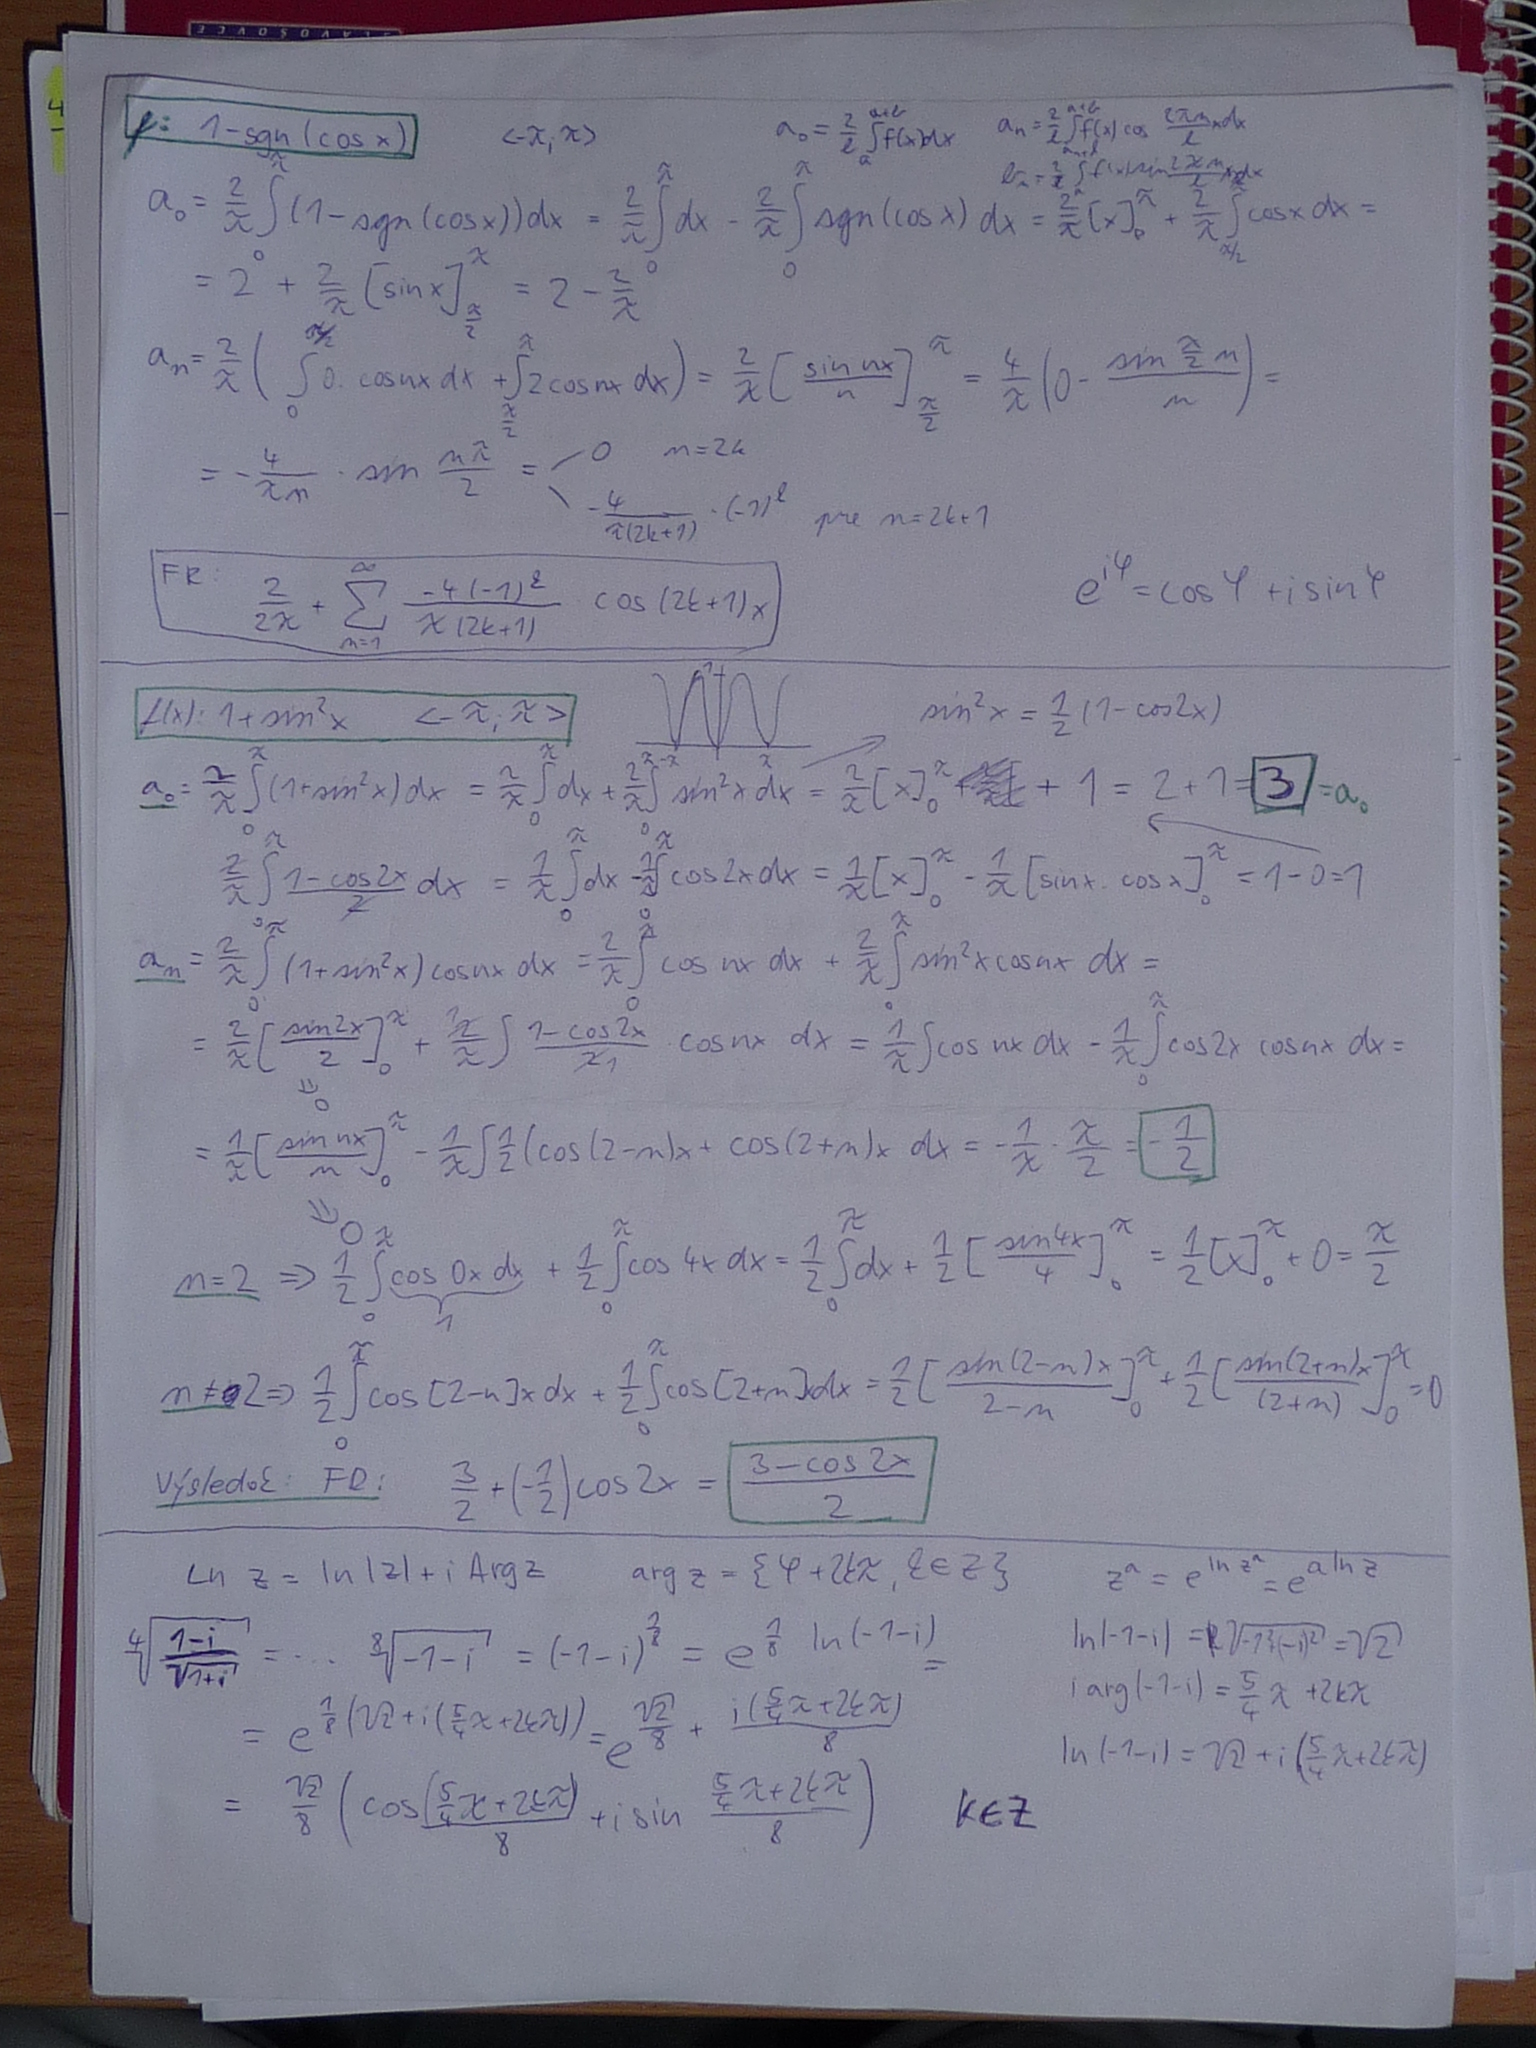 f: 1-sgn(cos x)   <-π; π>   a₀ = 2/l ∫ₐ^(a+l) f(x)dx   aₙ = 2/l ∫ₐ^(a+l) f(x) cos 2πn/l x dx
bₙ = 2/l ∫ₐ^(a+l) f(x) sin 2πn/l x dx
a₀ = 2/π ∫₀^π (1-sgn(cos x))dx = 2/π ∫₀^π dx - 2/π ∫₀^π sgn(cos x) dx = 2/π [x]₀^π + 2/π ∫_(π/2)^π cos x dx =
= 2 + 2/π [sin x]_(π/2)^π = 2 - 2/π
aₙ = 2/π ( ∫₀^(π/2) 0. cos nx dx + ∫_(π/2)^π 2 cos nx dx) = 2/π [sin nx / n]_(π/2)^π = 4/π (0 - sin π/2 n / n) =
= - 4/πn · sin nπ/2 = 0   n=2k
-4/π(2k+1) · (-1)^k pre n=2k+1
FR: 2/2π + ∑_(n=1)^∞ -4(-1)^k / π(2k+1) · cos(2k+1)x   e^(iφ) = cos φ + i sin φ
f(x): 1+sin²x   <-π; π>   sin²x = 1/2 (1-cos2x)
a₀ = 2/π ∫₀^π (1+sin²x)dx = 2/π ∫₀^π dx + 2/π ∫₀^π sin²x dx = 2/π [x]₀^π + 1 = 2+1 = 3 = a₀
2/π ∫₀^π 1-cos2x / 2 dx = 1/π ∫₀^π dx - 1/π ∫₀^π cos2x dx = 1/π [x]₀^π - 1/π [sin x. cos x]₀^π = 1-0=1
aₙ = 2/π ∫₀^π (1+sin²x) cos nx dx = 2/π ∫₀^π cos nx dx + 2/π ∫₀^π sin²x cos nx dx =
= 2/π [sin2x / 2]₀^π + 2/π ∫ 1-cos2x / 2 · cos nx dx = 1/π ∫ cos nx dx - 1/π ∫₀^π cos2x cos nx dx =
⇓ 0
= 1/π [sin nx / n]₀^π - 1/π ∫ 1/2 (cos(2-n)x + cos(2+n)x dx = - 1/π · π/2 = - 1/2
⇓ 0
n=2 ⇒ 1/2 ∫₀^π cos 0x dx + 1/2 ∫₀^π cos 4x dx = 1/2 ∫₀^π dx + 1/2 [sin4x / 4]₀^π = 1/2 [x]₀^π + 0 = π/2
1
n≠2 ⇒ 1/2 ∫₀^π cos[2-n]x dx + 1/2 ∫₀^π cos[2+n]x dx = 1/2 [sin(2-n)x / 2-n]₀^π + 1/2 [sin(2+n)x / (2+n)]₀^π = 0
Výsledok: FR: 3/2 + (-1/2) cos 2x = 3-cos2x / 2
Ln z = ln|z| + i Arg z   arg z = {φ+2kπ, k∈Z}   z^a = e^(ln z^a) = e^(a ln z)
⁴√(1-i / √(1+i)) = ... ⁸√(-1-i) = (-1-i)^(1/8) = e^(1/8 ln(-1-i)) =
ln(-1-i) = √(-1²+(-i)²) = √2
i arg(-1-i) = 5/4 π + 2kπ
= e^(1/8 (√2 + i(5/4 π+2kπ))) = e^(√2/8 + i(5/4 π+2kπ)/8)
ln(-1-i) = √2 + i(5/4 π+2kπ)
= √2/8 (cos (5/4 π+2kπ)/8 + i sin 5/4 π+2kπ / 8)   k∈Z